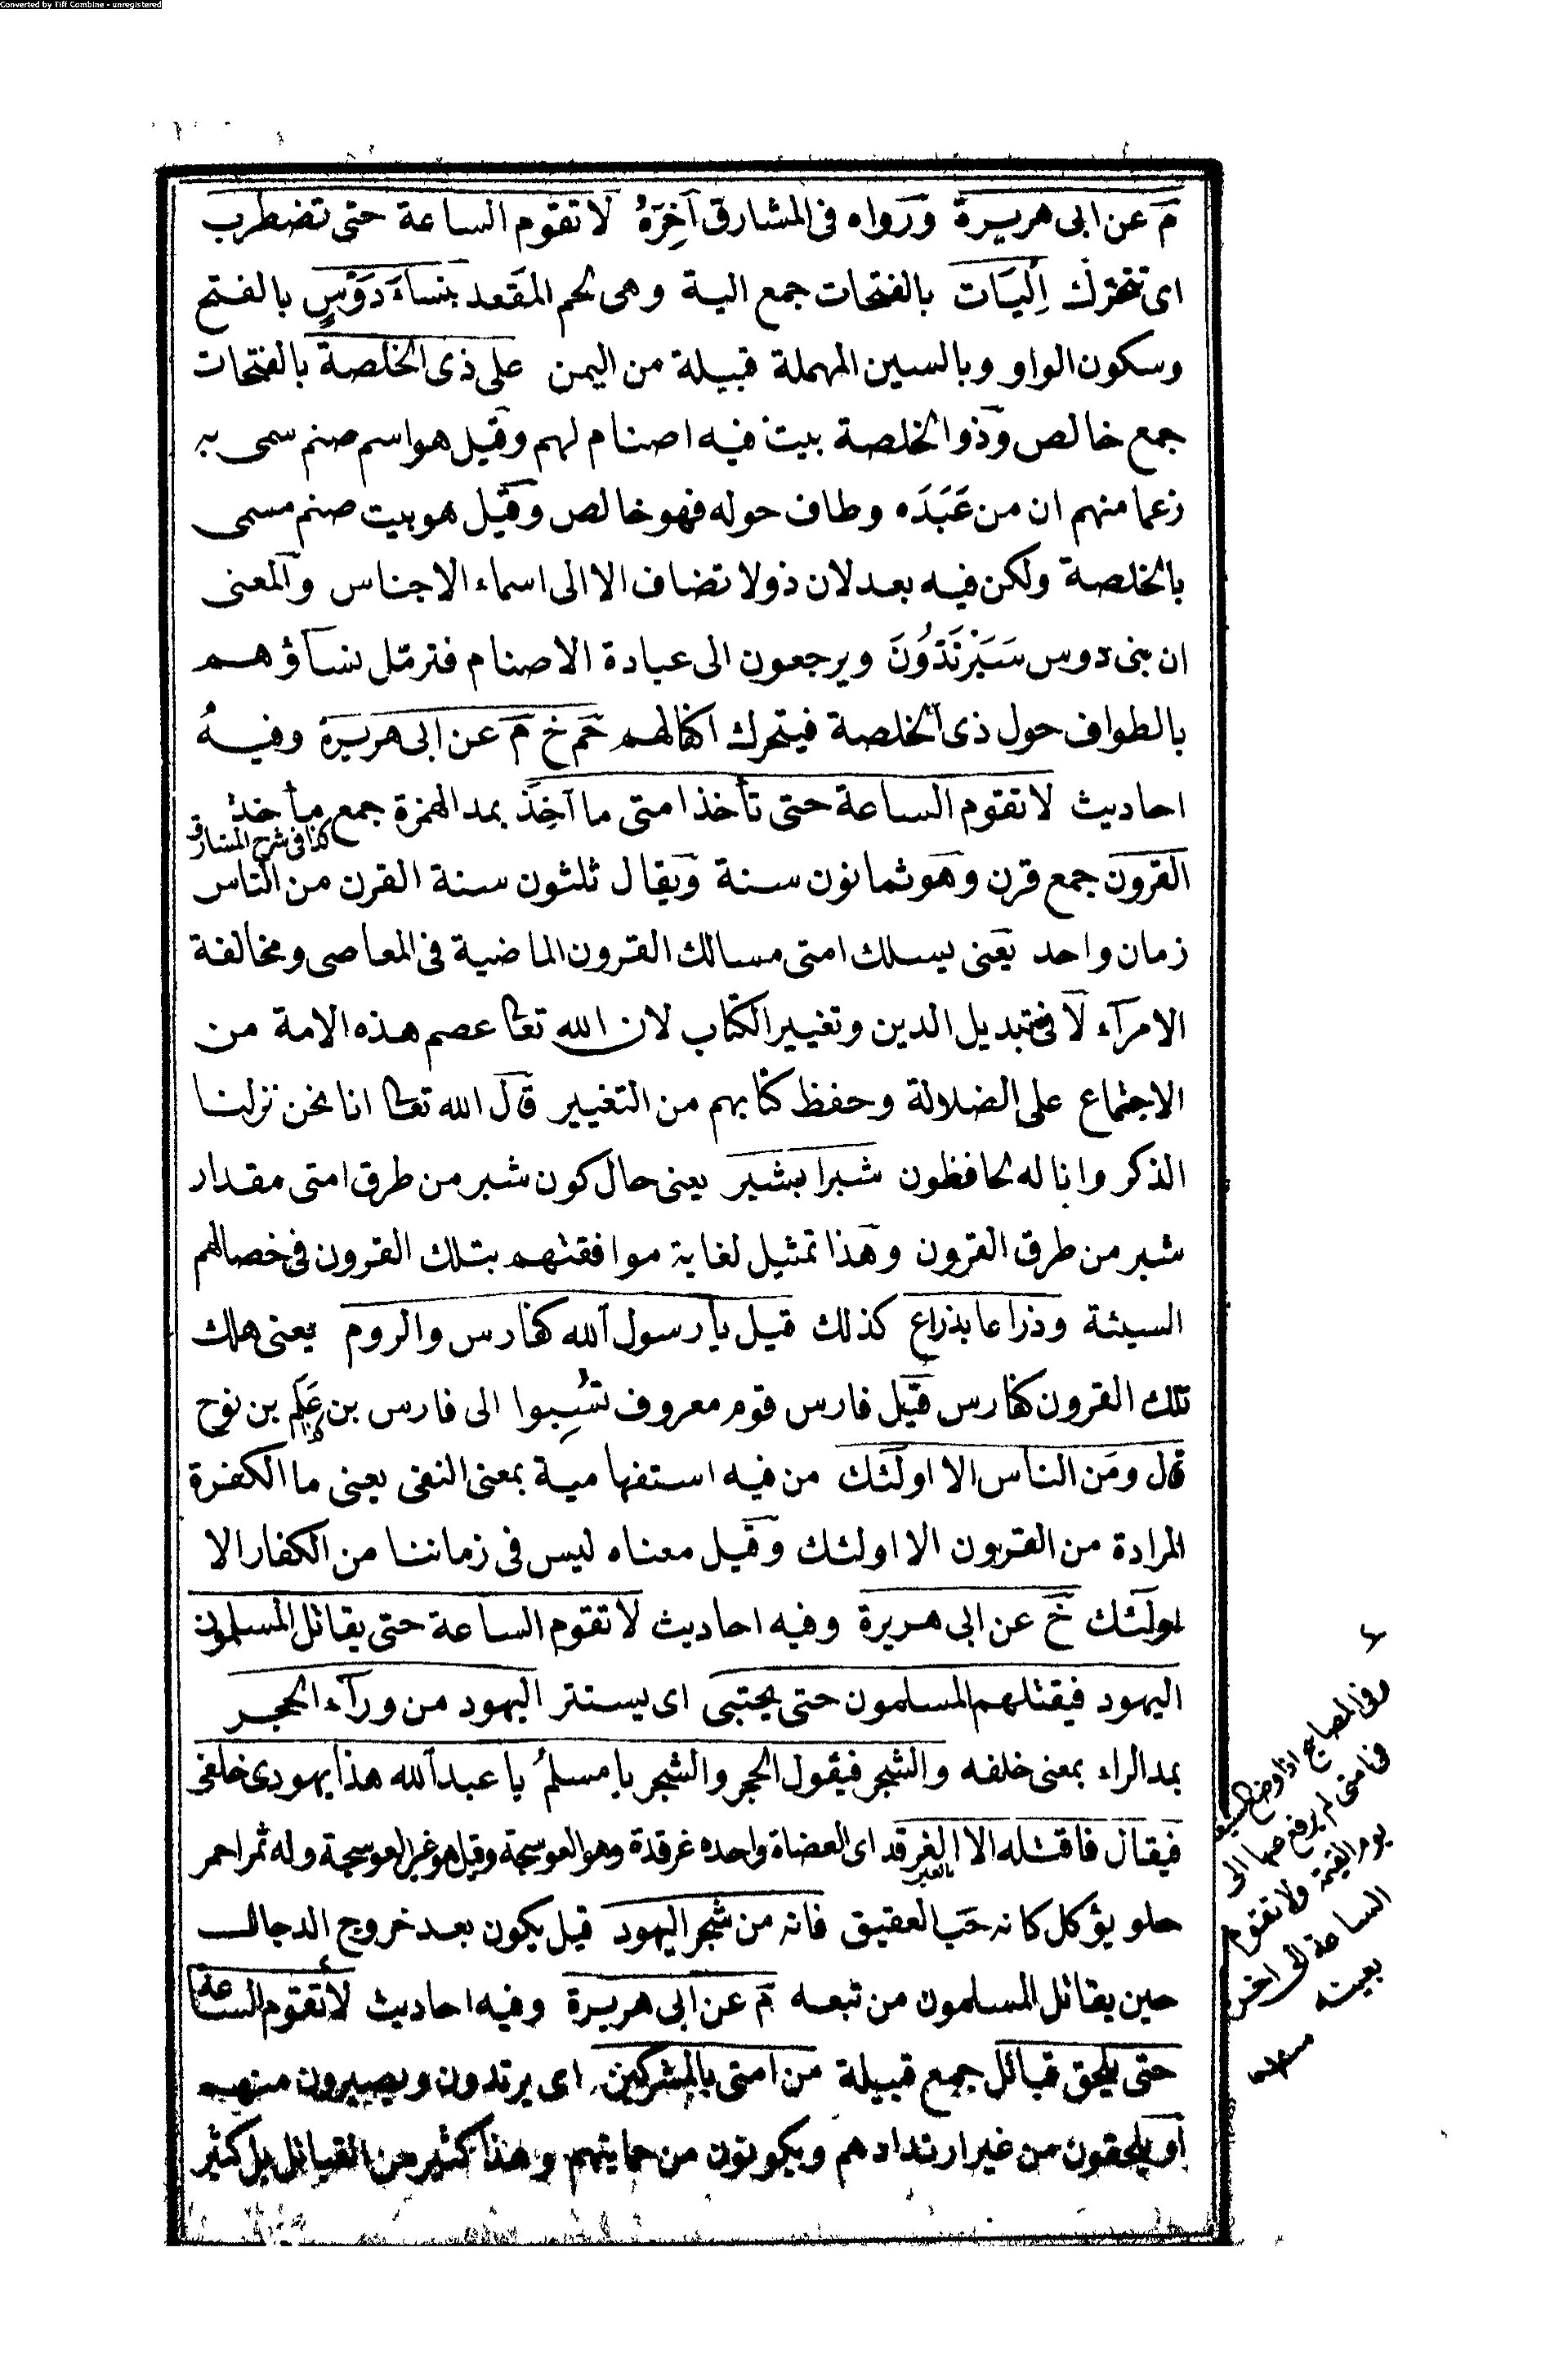 Converted by Tiff Combine - unregistered
م عن ابى هريرة ورواه فى المشارق آخِرَهُ لا تقوم الساعة حتى تضطرب
اى تتحرك اَلْيَات بالفتحات جمع الية وهى لحم المقعد بنساء دَوْسٍ بالفتح
وسكون الواو وبالسين المهملة قبيلة من اليمن على ذى الخلصة بالفتحات
جمع خالص وذو الخلصة بيت فيه اصنام لهم وقيل هو اسم صنم سمى به
زعما منهم ان من عَبَدَه وطاف حوله فهو خالص وقيل هو بيت صنم مسمى
بالخلصة ولكن فيه بعد لان ذو لا تضاف الا الى اسماء الاجناس والمعنى
ان بنى دوس سَيَرْتَدُّونَ ويرجعون الى عبادة الاصنام فترمّل نساؤهم
بالطواف حول ذى الخلصة فيتحرك اكفالهم حم خ م عن ابى هريرة وفيه
احاديث لا تقوم الساعة حتى تأخذ امتى ما آخِذَ بمد الهمزة جمع مأخذ
كذا فى شرح المشارق
القرون جمع قرن وهو ثمانون سنة ويقال ثلثون سنة القرن من الناس
زمان واحد يعنى يسلك امتى مسالك القرون الماضية فى المعاصى ومخالفة
الامرآء لا فى تبديل الدين وتغيير الكتاب لان الله تعا عصم هذه الامة من
الاجتماع على الضلالة وحفظ كتابهم من التغيير قال الله تعا انا نحن نزلنا
الذكر وانا له لحافظون شبرا بشبر يعنى حال كون شبر من طرق امتى مقدار
شبر من طرق القرون وهذا تمثيل لغاية موافقتهم بتلك القرون فى خصالهم
السيئة وذراعا بذراع كذلك قيل يا رسول الله كفارس والروم يعنى هلك
تلك القرون كفارس قيل فارس قوم معروف نُسِبوا الى فارس بن عَلَم بن نوح
قال ومَن الناس الا اولئك من فيه استفهامية بمعنى النفى يعنى ما الكفرة
المرادة من القرون الا اولئك وقيل معناه ليس فى زماننا من الكفار الا
اولئك خ عن ابى هريرة وفيه احاديث لا تقوم الساعة حتى يقاتل المسلمون
اليهود فيقتلهم المسلمون حتى يختبى اى يستتر اليهود من ورآء الحجر
بمد الراء بمعنى خلفه والشجر فيقول الحجر والشجر يا مسلمُ يا عبد الله هذا يهودى خلفى
فيقال فاقتله الا الغرقد اى العضاة واحده غرقدة وهو العوسجة وقيل هو غير العوسجة وله ثمر احمر
حلو يؤكل كانه حَب العقيق فانه من شجر اليهود قيل يكون بعد خروج الدجال
حين يقاتل المسلمون من تبعه م عن ابى هريرة وفيه احاديث لا تقوم الساعة
حتى يلحق قبائل جمع قبيلة من امتى بالمشركين اى يرتدون ويصيرون منهم
او يلحقون من غير ارتدادهم ويكونون من حمايتهم وهذا كثير من القبائل بل كثير
وفى المصابيح اذا وضع السيف
فى امتى لم يرفع عنها الى
يوم القيمة ولا تقوم
الساعة الى اخره